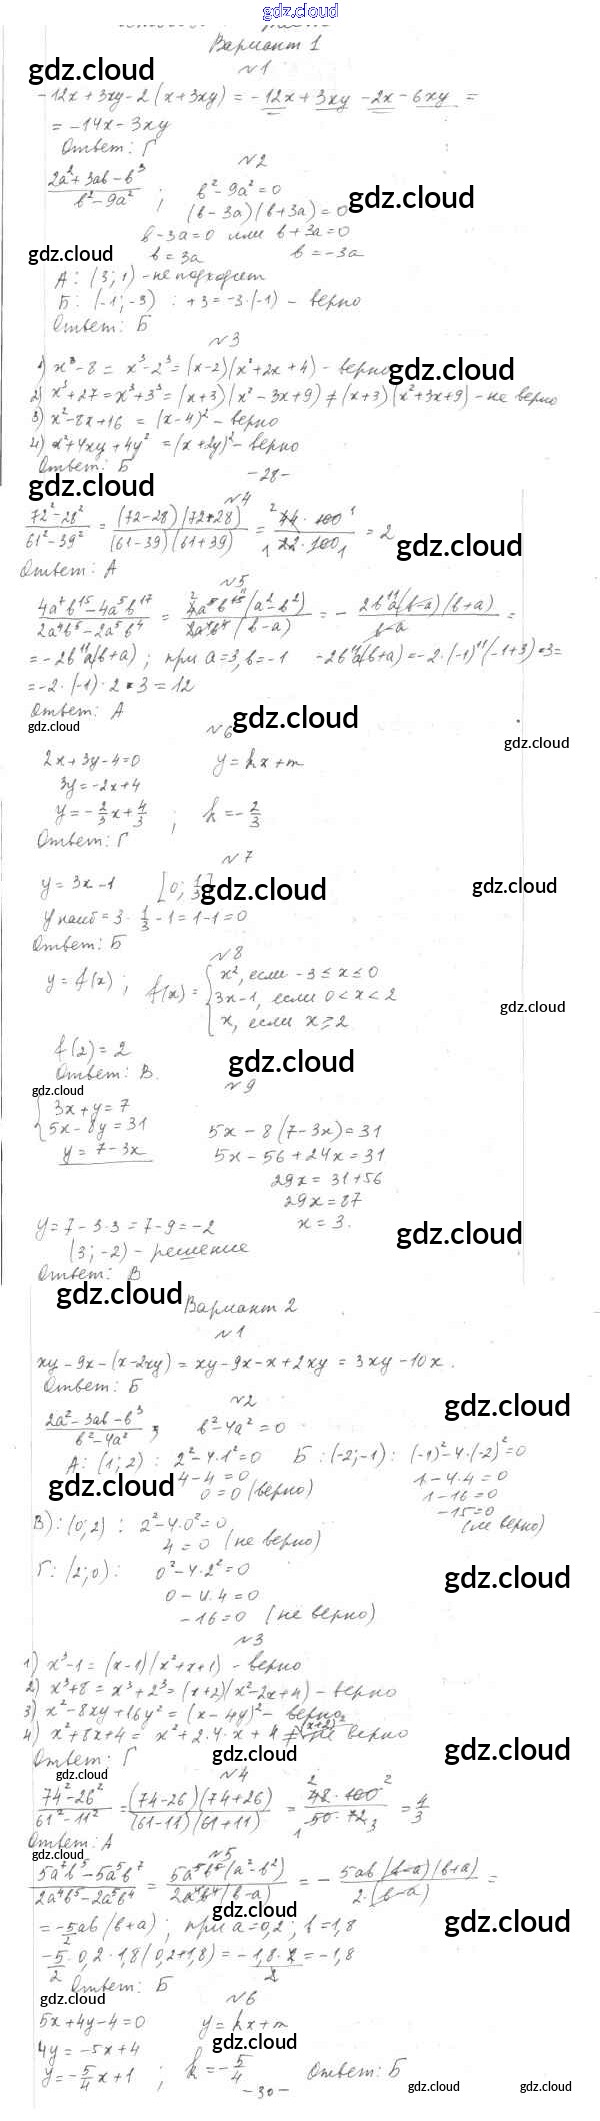 gdz.cloud
Вариант 1
gdz.cloud
№1
-12x + 3xy - 2(x + 3xy) = -12x + 3xy - 2x - 6xy =
= -14x - 3xy
Ответ: Г
№2
(2a² + 3ab - b³)/(b² - 9a²) ; b² - 9a² = 0
gdz.cloud
(b - 3a)(b + 3a) = 0
b - 3a = 0 или b + 3a = 0
gdz.cloud
b = 3a b = -3a
А: (3; 1) - не подходит
Б: (-1; -3) : +3 = -3·(-1) - верно
Ответ: Б
№3
1) x³ - 8 = x³ - 2³ = (x - 2)(x² + 2x + 4) - верно
gdz.cloud
2) x³ + 27 = x³ + 3³ = (x + 3)(x² - 3x + 9) ≠ (x + 3)(x² + 3x + 9) - не верно
3) x² - 8x + 16 = (x - 4)² - верно
4) x² + 4xy + 4y² = (x + 2y)² - верно
Ответ: Б
-28-
gdz.cloud
№4
(72² - 28²)/(61² - 39²) = (72 - 28)(72 + 28)/(61 - 39)(61 + 39) = 44·100/22·100 = 2
gdz.cloud
Ответ: А
№5
(4a⁷b¹⁵ - 4a⁵b¹⁷)/(2a⁴b⁵ - 2a⁵b⁴) = 4a⁵b¹⁵(a² - b²)/2a⁴b⁴(b - a) = - 2b¹¹a(b - a)(b + a)/(b - a) =
= -2b¹¹a(b + a) ; при a = 3, b = -1 -2b¹¹a(b + a) = -2·(-1)¹¹(-1 + 3)·3 =
= -2·(-1)·2·3 = 12
Ответ: А
gdz.cloud
gdz.cloud
№6
gdz.cloud
2x + 3y - 4 = 0 y = kx + m
3y = -2x + 4
y = -2/3 x + 4/3 ; k = -2/3
Ответ: Г
№7
y = 3x - 1 [0; 1/3]
gdz.cloud
gdz.cloud
y наиб = 3·1/3 - 1 = 1 - 1 = 0
Ответ: Б
№8
y = f(x) ; f(x) = { x², если -3 ≤ x ≤ 0
3x - 1, если 0 < x < 2
gdz.cloud
x, если x ≥ 2
f(2) = 2
gdz.cloud
Ответ: В.
№9
gdz.cloud
{ 3x + y = 7
5x - 8y = 31 5x - 8(7 - 3x) = 31
y = 7 - 3x 5x - 56 + 24x = 31
29x = 31 + 56
29x = 87
y = 7 - 3·3 = 7 - 9 = -2 x = 3.
gdz.cloud
(3; -2) - решение
Ответ: В
gdz.cloud
Вариант 2
№1
xy - 9x - (x - 2xy) = xy - 9x - x + 2xy = 3xy - 10x.
Ответ: Б
№2
gdz.cloud
(2a² - 3ab - b³)/(b² - 4a²) ; b² - 4a² = 0
А: (1; 2) : 2² - 4·1² = 0 Б: (-2; -1) : (-1)² - 4·(-2)² = 0
4 - 4 = 0 1 - 4·4 = 0
gdz.cloud
0 = 0 (верно) 1 - 16 = 0
-15 = 0
(не верно)
В): (0; 2) : 2² - 4·0² = 0
4 = 0 (не верно)
Г: (2; 0) : 0² - 4·2² = 0
gdz.cloud
0 - 4·4 = 0
-16 = 0 (не верно)
№3
1) x³ - 1 = (x - 1)(x² + x + 1) - верно
2) x³ + 8 = x³ + 2³ = (x + 2)(x² - 2x + 4) - верно
3) x² - 8xy + 16y² = (x - 4y)² - верно
4) x² + 8x + 4 = x² + 2·4·x + 4 ≠ (x + 2)² не верно
Ответ: Г
gdz.cloud
gdz.cloud
gdz.cloud
№4
(74² - 26²)/(61² - 11²) = (74 - 26)(74 + 26)/(61 - 11)(61 + 11) = 48·100/50·72 = 4/3
Ответ: А
gdz.cloud
№5
(5a⁷b⁵ - 5a⁵b⁷)/(2a⁴b⁵ - 2a⁵b⁴) = 5a⁵b⁵(a² - b²)/2a⁴b⁴(b - a) = - 5ab(b - a)(b + a)/2·(b - a) =
gdz.cloud
gdz.cloud
= -5/2 ab(b + a) ; при a = 0,2 ; b = 1,8
-5/2·0,2·1,8(0,2 + 1,8) = -1,8·2/2 = -1,8
Ответ: Б
gdz.cloud
№6
5x + 4y - 4 = 0 y = kx + m
gdz.cloud
4y = -5x + 4
y = -5/4 x + 1 ; k = -5/4 Ответ: Б
-30-
gdz.cloud
gdz.cloud